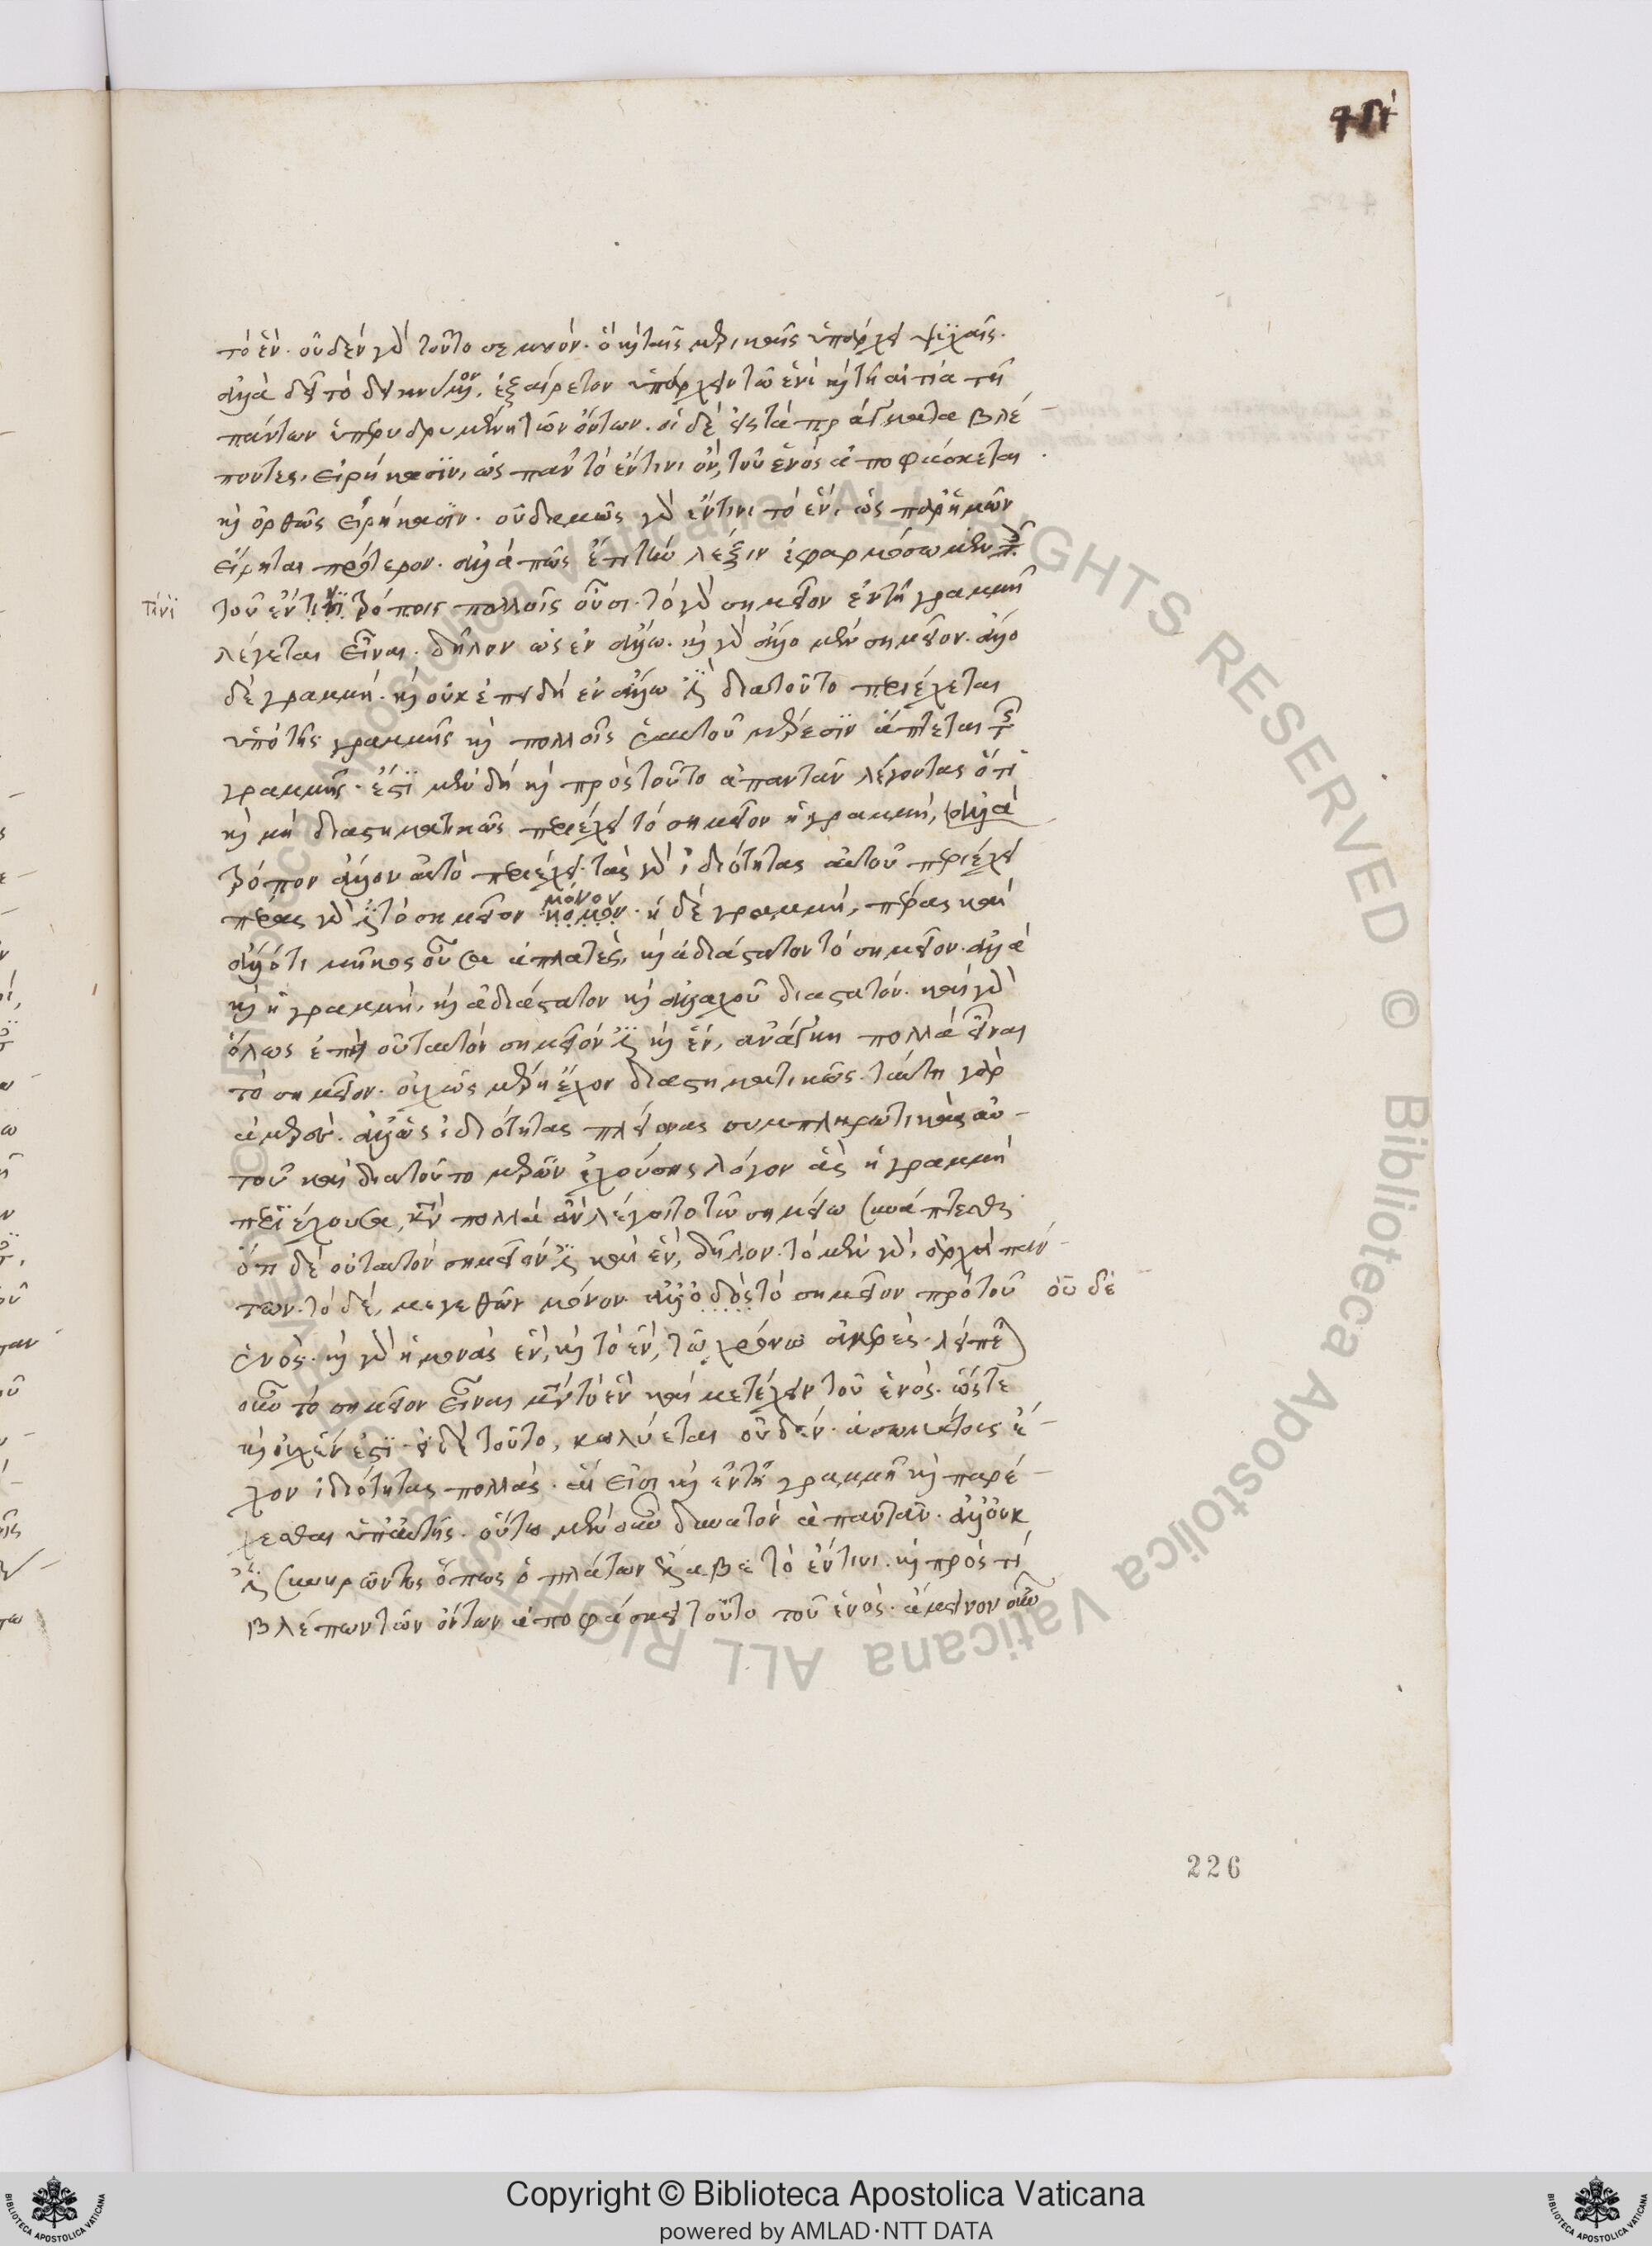 τὸ ἕν. οὐδὲν γὰρ τοῦτο σεμνόν. ὃ καὶ ταῖς μερικαῖς ὑπάρχει ψυχαῖς.
ἀλλὰ δεῖ τὸ δεικνύμενον, ἐξαίρετον ὑπάρχειν τῷ ἑνὶ καὶ τῇ αἰτία τῇ
πάντων ὑπεριδρυμένῃ τῶν ὄντων. οἱ δὲ εἰς τὰ πράγματα βλέ
ποντες, εἰρήκασιν, ὡς πᾶν τὸ ἔν τινι ὄν, τοῦ ἑνὸς ἀποφάσκεται
καὶ ὀρθῶς εἰρήκασιν. οὐδαμῶς γὰρ ἔν τινι τὸ ἕν, ὡς παρ' ἡμῶν
εἴρηται πρότερον. ἀλλὰ πῶς ἐπὶ τὴν λέξιν ἐφαρμόσωμεν
τινὶ
τοῦ ἔν τινι τρόποις πολλοῖς οὖσι. τὸ γὰρ σημεῖον ἐν τῇ γραμμῇ
λέγεται εἶναι. δῆλον ὡς ἐν ἄλλω. καὶ γὰρ ἄλλο μὲν σημεῖον. ἄλλο
δὲ γραμμή. καὶ οὐκ ἐπειδὴ ἐν ἄλλω ἐστὶ διὰ τοῦτο περιέχεται
ὑπὸ τῆς γραμμῆς καὶ πολλοῖς ἑαυτοῦ μέρεσιν ἅπτεται τῆς
γραμμῆς. ἔστι μὲν δὴ καὶ πρὸς τοῦτο ἀπαντᾶν λέγοντας ὅτι
καὶ μὴ διαστηματικῶς περιέχει τὸ σημεῖον ἡ γραμμή, ἀλλὰ
τρόπον ἄλλον αὐτὸ περιέχει. τὰς γὰρ ἰδιότητας αὐτοῦ περιέχει
πέρας γὰρ ἐστὶ τὸ σημεῖον μόνον. ἡ δὲ γραμμή, πέρας καὶ
ἄλλό τι μῆκος οὖσα ἀπλατές, καὶ ἀδιάστατον τὸ σημεῖον. ἀλλὰ
καὶ ἡ γραμμή, καὶ ἀδιάστατον καὶ ἀλλαχοῦ διαστατόν. καὶ γὰρ
ὅλως ἐπεὶ οὐ ταυτὸν σημεῖόν ἐστι καὶ ἕν, ἀνάγκη πολλὰ εἶναι
τὸ σημεῖον. οὐχ ὡς μέρη ἔχον διαστηματικῶς. ταύτη γὰρ
ἀμερές. ἀλλ' ὡς ἰδιότητας πλείονας συμπληρωτικὰς αὐ
τοῦ καὶ διὰ τοῦτο μερῶν ἐχούσης λόγον ἃς ἡ γραμμὴ
περιέχουσα, κἂν πολλὰ ἂν λέγοιτο τῶ σημείω συνάπτεσθαι
ὅτι δὲ οὐ ταυτὸν σημεῖόν ἐστι καὶ ἕν, δῆλον. τὸ μὲν γὰρ, ἀρχὴ πάν
των. τὸ δέ, μεγεθῶν μόνον. ἀλλ' ὁδὸς τὸ σημεῖον πρὸ τοῦ οὐ δὲ
ἑνός. καὶ γὰρ ἡ μονὰς ἕν, καὶ τὸ ἐν τῷ χρόνω ἀμερές. λείπεται
οὖν τὸ σημεῖον εἶναι μὴ τὸ ἓν καὶ μετέχειν τοῦ ἑνός. ὥστε
καὶ οὐχ ἕν ἐστι. εἰ δὲ τοῦτο, κωλύεται οὐδὲν. ἀσωμάτους ἔ
χον ἰδιότητας πολλάς. αἵ εἰσι καὶ ἐν τῇ γραμμῇ καὶ περιέ
χεσθαι ὑπ' αὐτῆς. οὕτω μὲν οὖν δυνατὸν ἀπαντᾶν. ἀλλ' οὐκ
ἔστι συνορῶντος ὅπως ὁ πλάτων ἔλαβε τὸ ἔν τινι. καὶ πρὸς τί
βλέπων τῶν ὄντων ἀποφάσκει τοῦτο τοῦ ἑνός. ἄμεινον οὖν
226
Copyright © Biblioteca Apostolica Vaticana
powered by AMLAD·NTT DATA